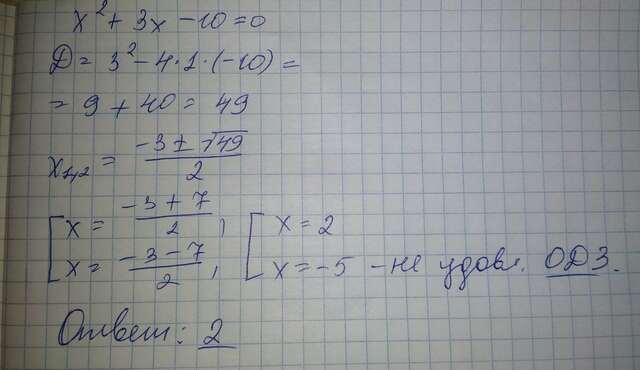 x² + 3x - 10 = 0
Д = 3² - 4·1·(-10) =
= 9 + 40 = 49
x₁,₂ = (-3 ± √49)/2
[ x = (-3 + 7)/2 , [ x = 2
[ x = (-3 - 7)/2 , [ x = -5 - не удовл. ОДЗ.
Ответ: 2